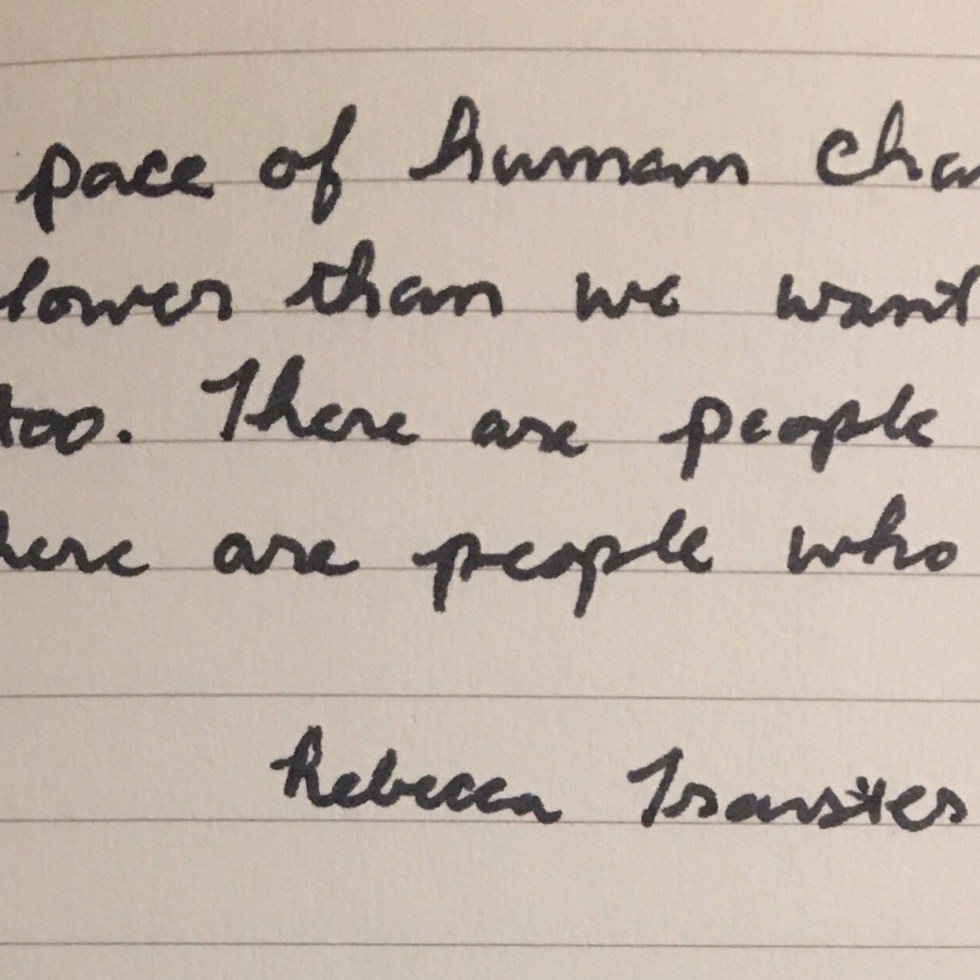 pace of human cha
lower than we want
too. There are people
here are people who
Rebecca Traister